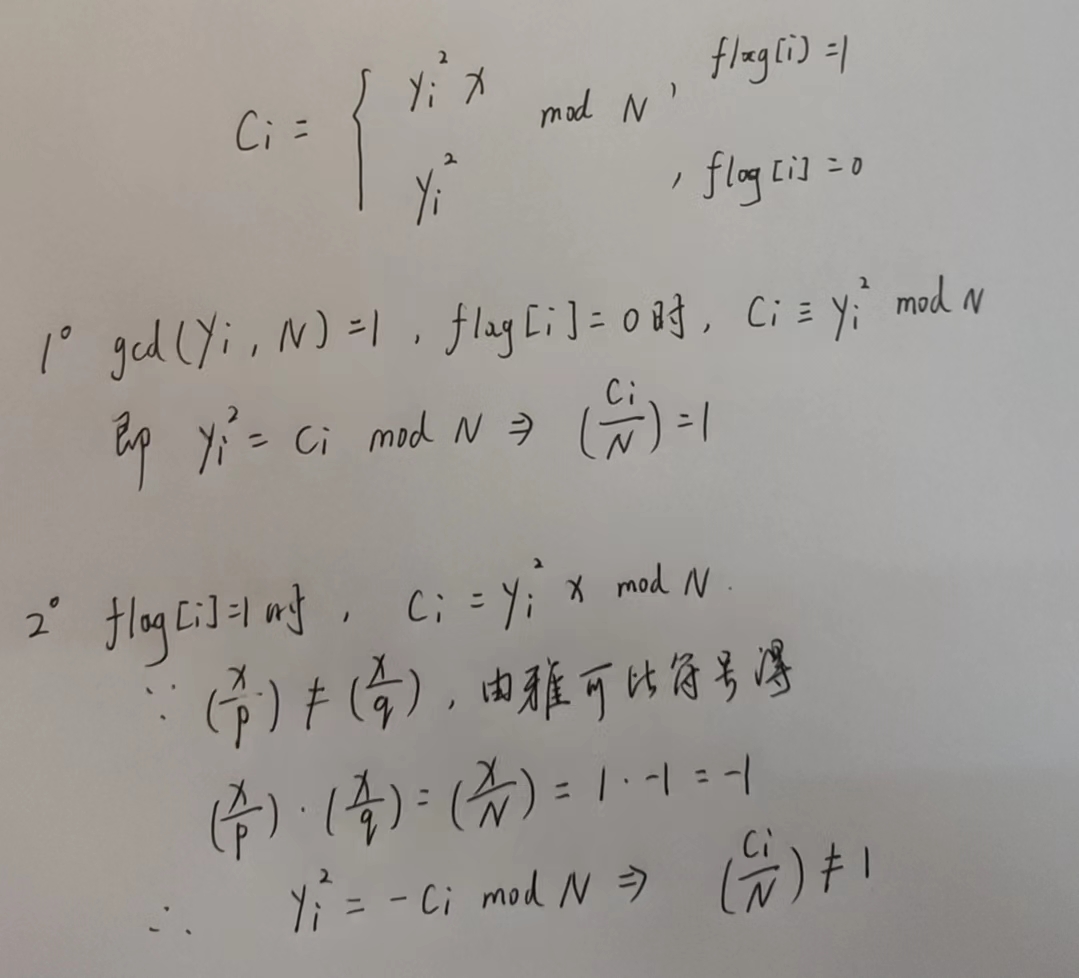 Ci = { yi² x mod N, flag[i]=1
yi² , flag[i]=0
1° gcd(yi, N)=1, flag[i]=0时, Ci ≡ yi² mod N
即 yi² = Ci mod N ⇒ (Ci/N)=1
2° flag[i]=1时, Ci = yi² x mod N.
∵ (x/p) ≠ (x/q), 由雅可比符号得
(x/p)·(x/q) = (x/N) = 1·-1 = -1
∴ yi² = -Ci mod N ⇒ (Ci/N) ≠ 1